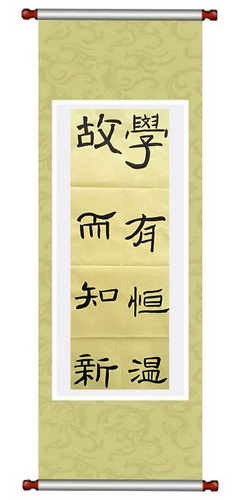 學有恒溫
故而知新